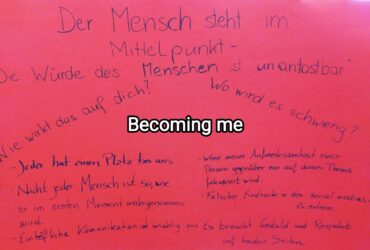 Der Mensch steht im
Mittelpunkt -
Die Würde des Menschen ist unantastbar"
Wie wirkt das auf dich?
Wo wird es schwierig?
Becoming me
- Jeder hat einen Platz bei uns
- Nicht jeder Mensch ist so, wie
er im ersten Moment wahrgenommen
wird.
- Einfühlliche Kommunikation ist wichtig
- wenn meine Aufmerksamkeit einer
Person gegenüber nur auf dieses Thema
fokussiert wird.
- Falscher Eindruck in den social medias
zu extrem
→ Es braucht Geduld und Respekt
auf beiden Seiten